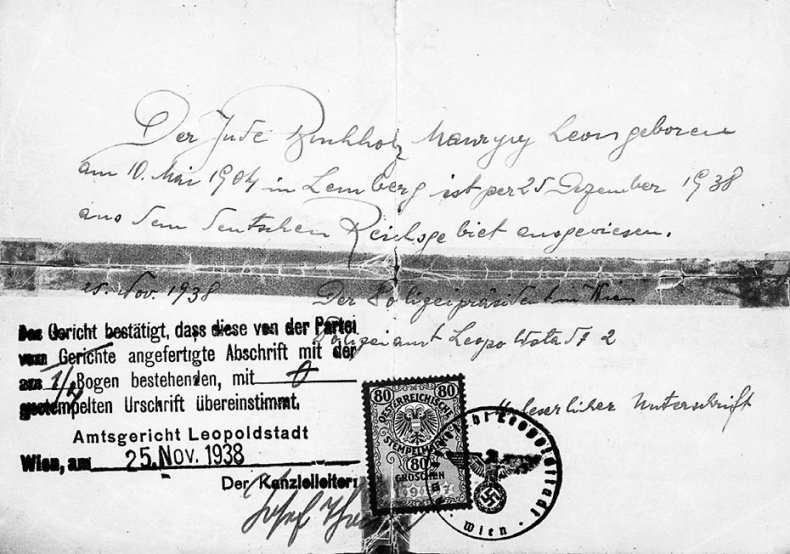 Der Jude Buchholz Maurycy Leon geboren
am 10. Mai 1904 in Lemberg ist per 25 Dezember 1938
aus dem deutschen Reichsgebiet ausgewiesen.
25. Nov. 1938 Der Polizeipräsident in Wien
Polizeiamt Leopoldstadt 2
Unleserlicher Unterschrift
Das Gericht bestätigt, dass diese von der Partei
vom Gerichte angefertigte Abschrift mit der
aus 1/2 Bogen bestehenden, mit 0
gestempelten Urschrift übereinstimmt.
Amtsgericht Leopoldstadt
Wien, am 25. Nov. 1938
Der Kanzleileiter:
Josef
80 80
ÖSTERREICHISCHE
STEMPELMARKE
80
GROSCHEN
Leopoldstadt
Wien